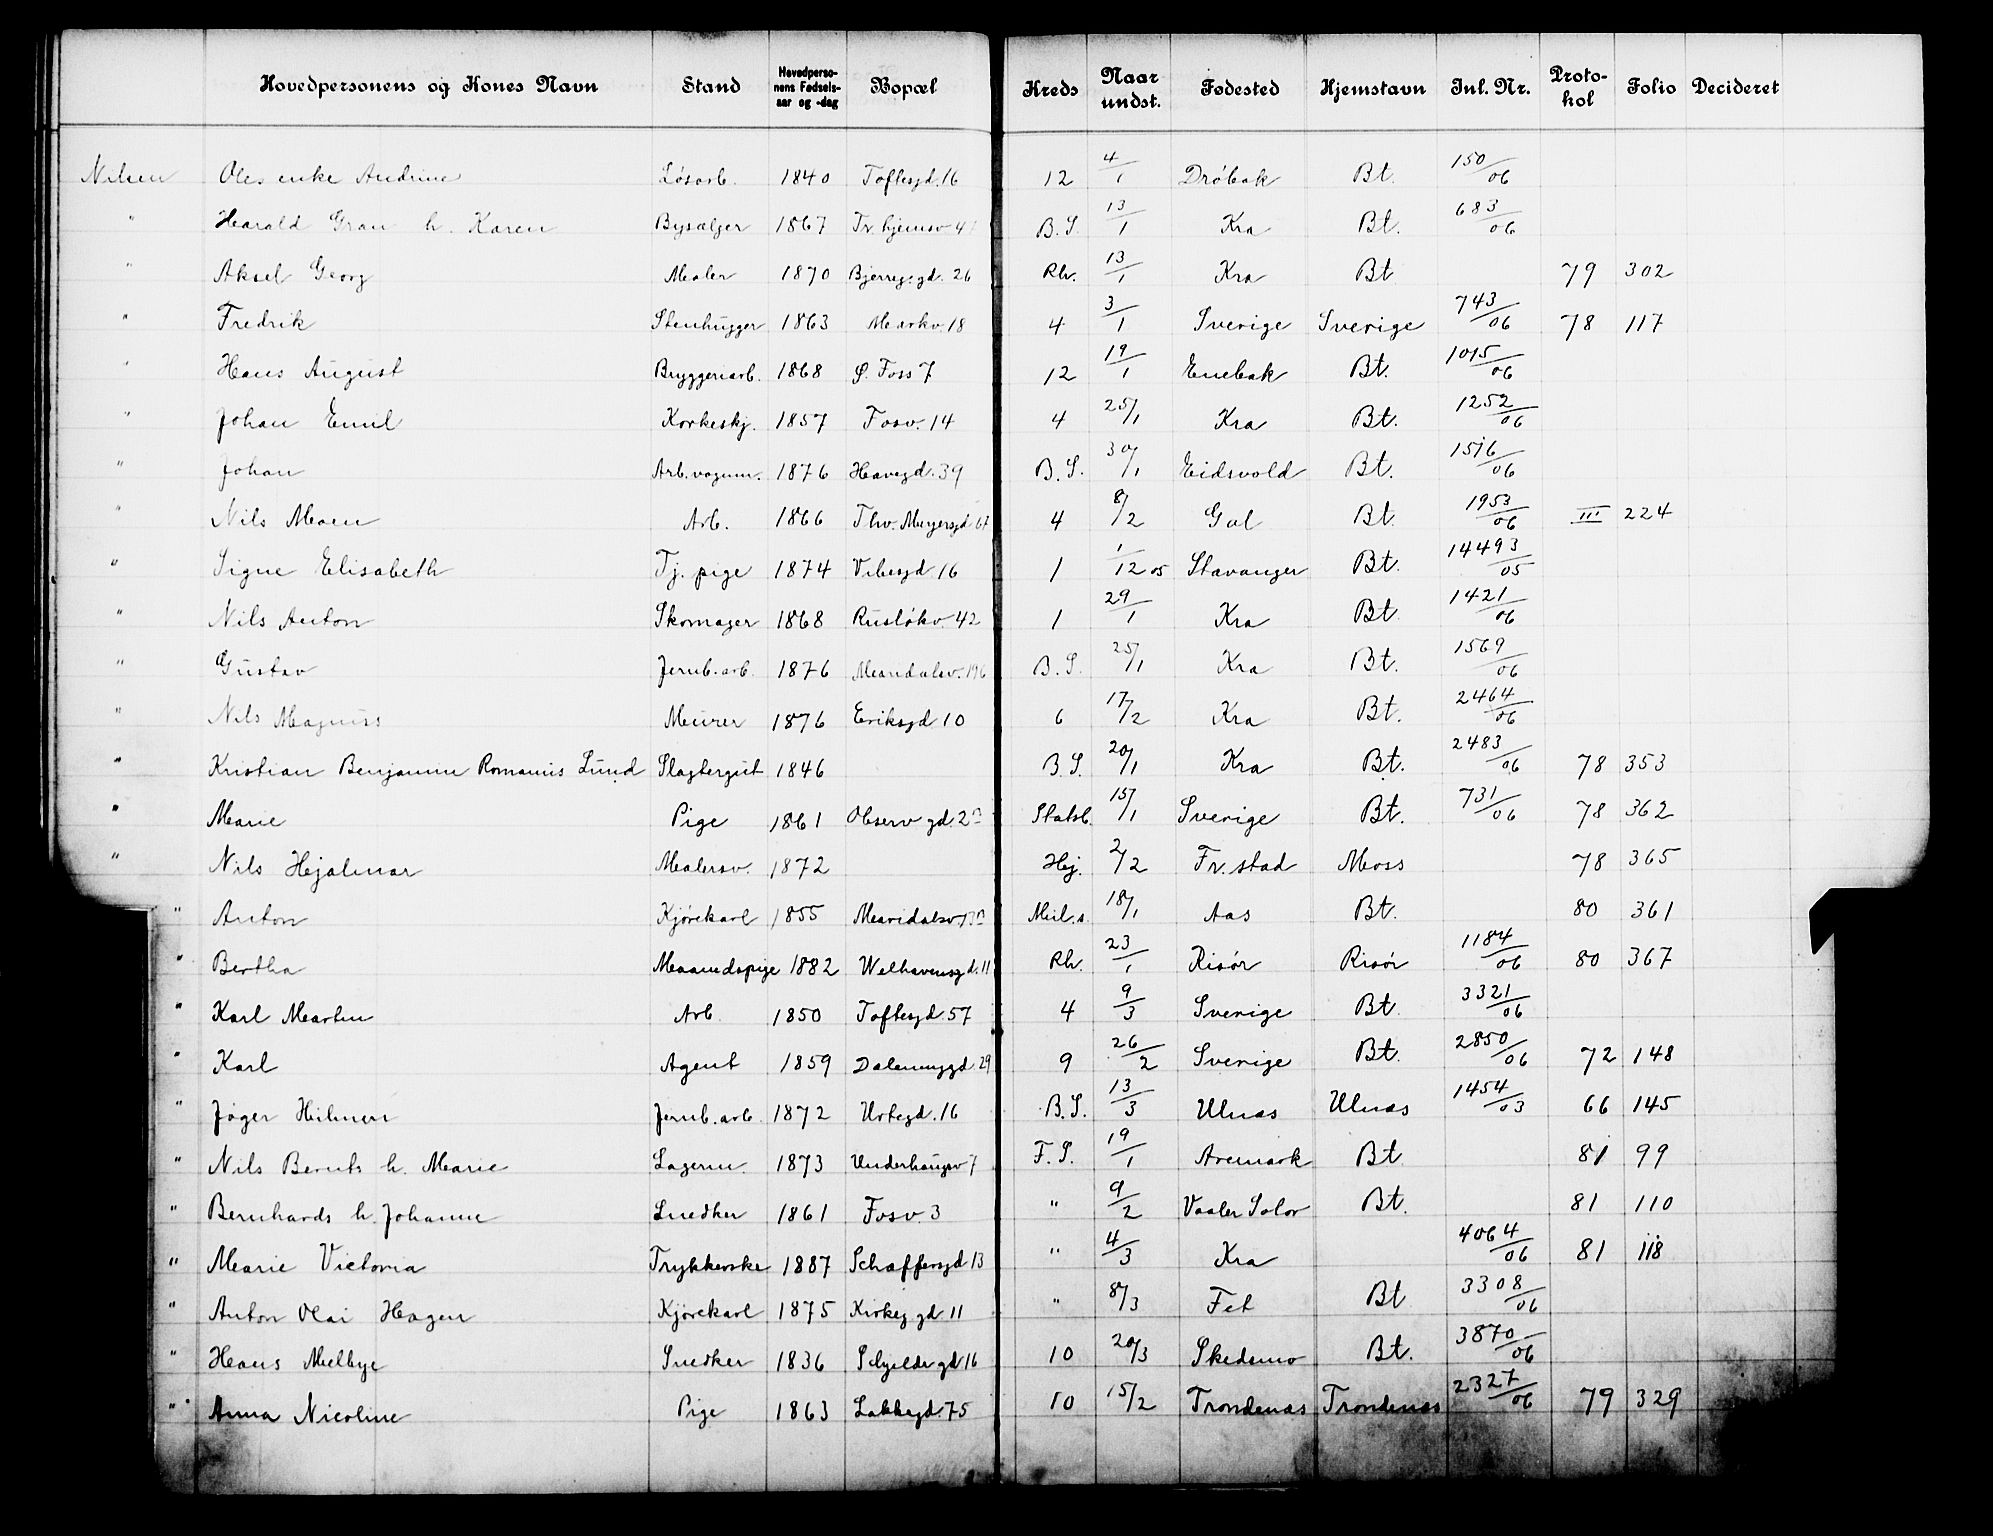 Hovedpersonens og Kones Navn Stand Hovedperso-nens Fødsels-aar og -dag Bopæl Kreds Naar undst. Fødested Hjemstavn Inl. Nr. Proto-kol Folio Decideret
Nilsen Oles enke Andrine Løsarb. 1840 Toftesgd. 16 12 4/1 Drøbak Bt. 150/06
" Harald Gran h. Karen Bysælger 1867 Tr. hjemsv 47 B.S. 13/1 Kra Bt. 683/06
" Aksel Georg Maler 1870 Bjerreg.gd. 26 Rh. 13/1 Kra Bt 79 302
" Fredrik Stenhugger 1863 Markv. 18 4 3/1 Sverige Sverige 743/06 78 117
" Hans August Bryggeriarb. 1868 Ø. Foss 7 12 19/1 Enebak Bt. 1015/06
" Johan Emil Korkeskj. 1857 Fosv. 14 4 25/1 Kra Bt. 1252/06
" Johan Arb. vognm. 1876 Havegd. 39 B.S. 30/1 Eidsvold Bt. 1516/06
" Nils Moen Arb. 1866 Thv. Meyersgd 67 4 8/2 Gol Bt 1953/06 III 224
" Signe Elisabeth Tj. pige 1874 Vibesgd. 16 1 1/12 05 Stavanger Bt. 14493/05
" Nils Anton Skomager 1868 Rusløkv. 42 1 29/1 Kra Bt. 1421/06
" Gustav Jernb. arb. 1876 Maridalsv. 196 B.S. 25/1 Kra Bt. 1569/06
" Nils Magnus Murer 1876 Eriksgd. 10 6 17/2 Kra Bt. 2464/06
" Kristian Benjamin Romanus Lund Slagtergut 1846 B.S. 20/1 Kra Bt. 2483/06 78 353
" Marie Pige 1861 Observ gd. 2 Statsb. 15/1 Sverige Bt. 731/06 78 362
" Nils Hjalmar Malersv. 1872 Hej. 2/2 Fr.stad Moss 78 365
" Anton Kjørekarl 1855 Maridalsv Mil.s. 18/1 Aas Bt. 80 361
" Bertha Maanedspige 1882 Welhavensgd. 11 Rh. 23/1 Risør Risør 1184/06 80 367
" Karl Martin Arb. 1850 Toftesgd. 57 4 9/3 Sverige Bt. 3321/06
" Karl Agent 1859 Dalenenggd. 29 9 26/2 Sverige Bt. 2850/06 72 148
" Jøger Hilmen Jernb. arb. 1872 Urtegd. 16 B.S. 13/3 Ulnæs Ulnæs 1454/03 66 145
" Nils Bernts h. Marie Lagerm. 1873 Underhaugsv 7 F.S. 19/1 Aremark Bt. 81 99
" Bernhards h. Johanne Snedker 1861 Fosv. 3 " 9/2 Vaaler Solør Bt. 81 110
" Marie Victoria Trykkerske 1887 Schaffersgd 13 " 4/3 Kra 4064/06 81 118
" Anton Olai Hagen Kjørekarl 1875 Kirkeg gd 11 " 8/3 Fet Bt 3308/06
" Hans Melbye Snedker 1836 Schjeldr gd 16 10 20/3 Skedsmo Bt. 3870/06
" Anna Nicoline Pige 1863 Lakkegd. 75 10 15/2 Trondenæs Trondenæs 2327/06 79 329